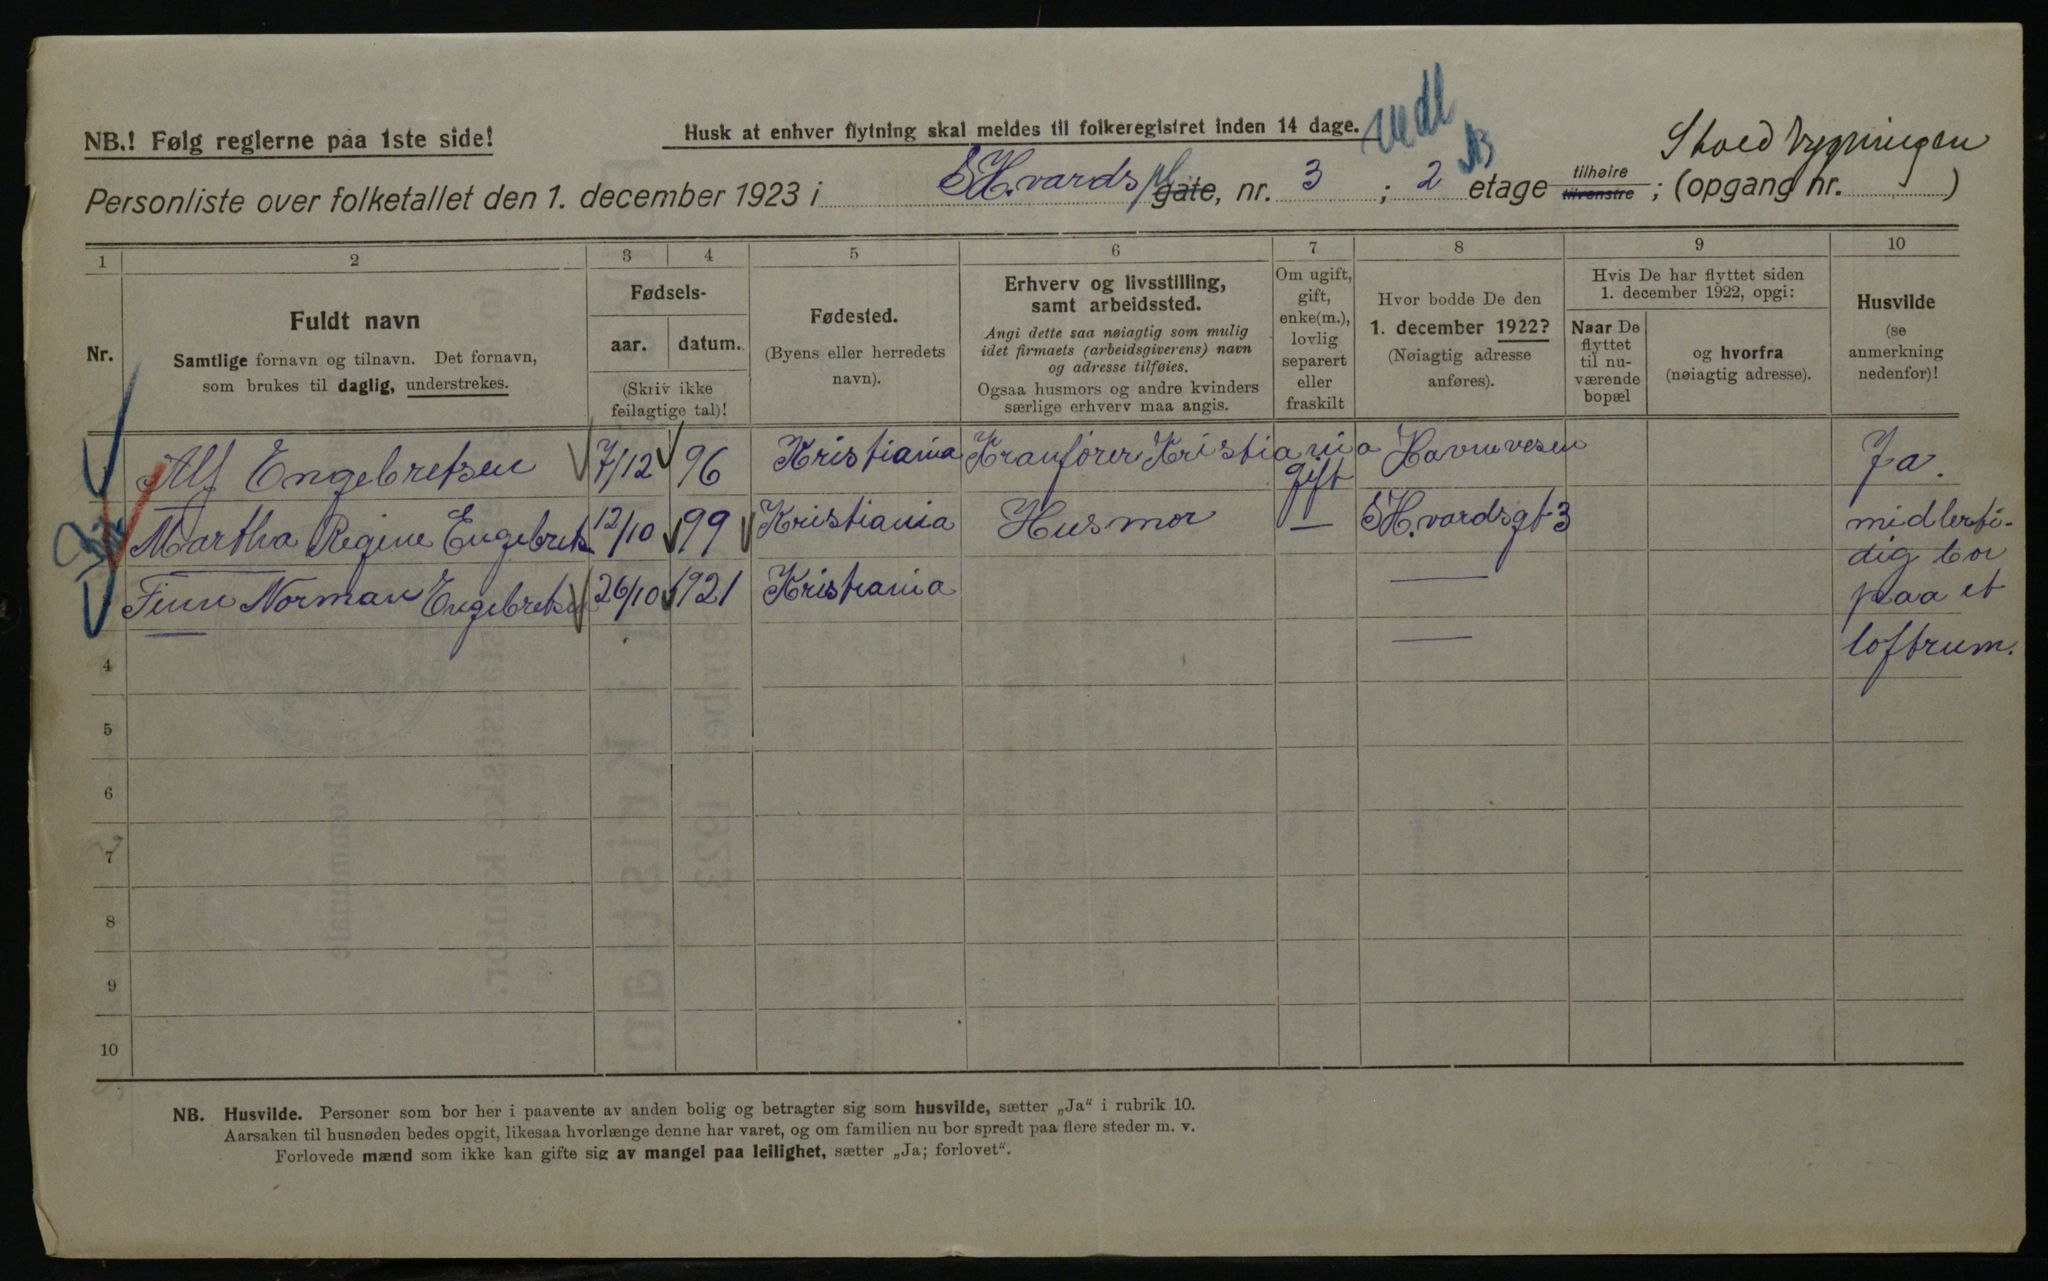 NB.! Følg reglerne paa 1ste side!
Husk at enhver flytning skal meldes til folkeregistret inden 14 dage.
Vedl
Personliste over folketallet den 1. december 1923 i St H.vards pl gate, nr. 3 ; 2 etage tilhøire tilvenstre ; (opgang nr. )
1 2 3 4 5 6 7 8 9 10
Nr.
Fuldt navn
Samtlige fornavn og tilnavn. Det fornavn,
som brukes til daglig, understrekes.
Fødsels-
aar. datum.
(Skriv ikke
feilagtige tal)!
Fødested.
(Byens eller herredets
navn).
Erhverv og livsstilling,
samt arbeidssted.
Angi dette saa nøiagtig som mulig
idet firmaets (arbeidsgiverens) navn
og adresse tilføies.
Ogsaa husmors og andre kvinders
særlige erhverv maa angis.
Om ugift,
gift,
enke(m.),
lovlig
separert
eller
fraskilt
Hvor bodde De den
1. december 1922?
(Nøiagtig adresse
anføres).
Hvis De har flyttet siden
1. december 1922, opgi:
Naar De
flyttet
til nu-
værende
bopæl
og hvorfra
(nøiagtig adresse).
Husvilde
(se
anmerkning
nedenfor)!
Alf Engebretsen 7/12 96 Kristiania Kranfører Kristiania Havnevesen gift Ja.
Martha Regine Engebrets 12/10 99 Kristiania Husmor — St H.vardsgt 3 midlerti-
dig bor
Finn Norman Engebretsen 26/10 1921 Kristiania — paa et
— loftrum.
4
5
6
7
8
9
10
NB. Husvilde. Personer som bor her i paavente av anden bolig og betragter sig som husvilde, sætter „Ja“ i rubrik 10.
Aarsaken til husnøden bedes opgit, likesaa hvorlænge denne har varet, og om familien nu bor spredt paa flere steder m. v.
Forlovede mænd som ikke kan gifte sig av mangel paa leilighet, sætter „Ja; forlovet“.